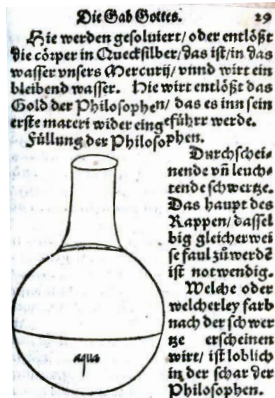 Die Gab Gottes. 29
Hie werden gesoluiert/ oder entlößt
die cörper in Quecksilber/ das ist/ in das
wasser vnsers Mercurij/ vnnd wirt ein
bleibend wasser. Hie wirt entlößt das
Gold der Philosophen/ das es inn sein
erste materi wider eingeführt werde.
Füllung der Philosophen.
Durchschei-
nende vñ leuch-
tende schwertze.
Das haupt des
Rappen/ dassel
big gleicher wei
se faul zů werdē
ist notwendig.
Welche oder
welcherley farb
nach der schwer
tze erscheinen
wirt/ ist loblich
in der schar der
Philosophen.
aqua